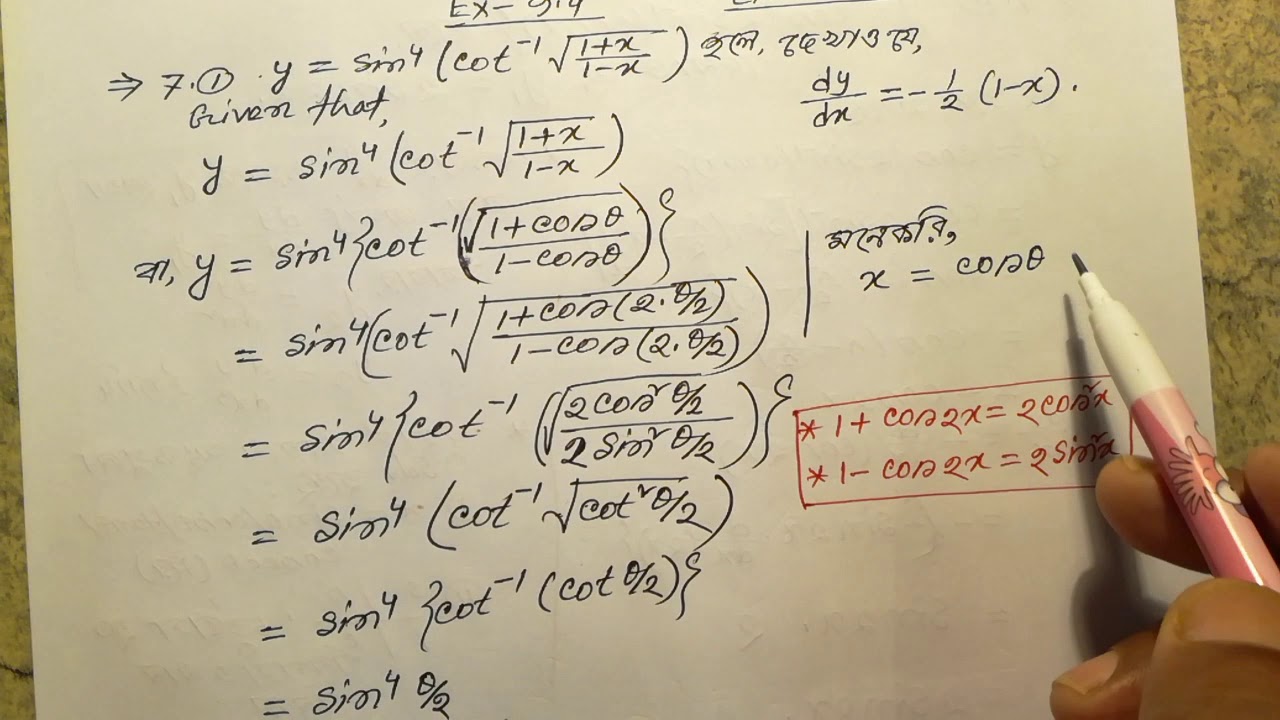 Ex-9.4
⇒ 7.① y = sin⁴ (cot⁻¹ √((1+x)/(1-x))) হলে, দেখাও যে,
dy/dx = -1/2 (1-x).
Given that,
y = sin⁴ (cot⁻¹ √((1+x)/(1-x)))
বা, y = sin⁴{cot⁻¹(√((1+cosθ)/(1-cosθ)))}
মনেকরি,
x = cosθ
= sin⁴(cot⁻¹ √((1+cos(2.θ/2))/(1-cos(2.θ/2))))
= sin⁴{cot⁻¹ (√((2cos²θ/2)/(2sin²θ/2)))}
* 1+cos2x = 2cos²x
* 1-cos2x = 2sin²x
= sin⁴ (cot⁻¹ √(cot²θ/2))
= sin⁴ {cot⁻¹ (cot θ/2)}
= sin⁴ θ/2